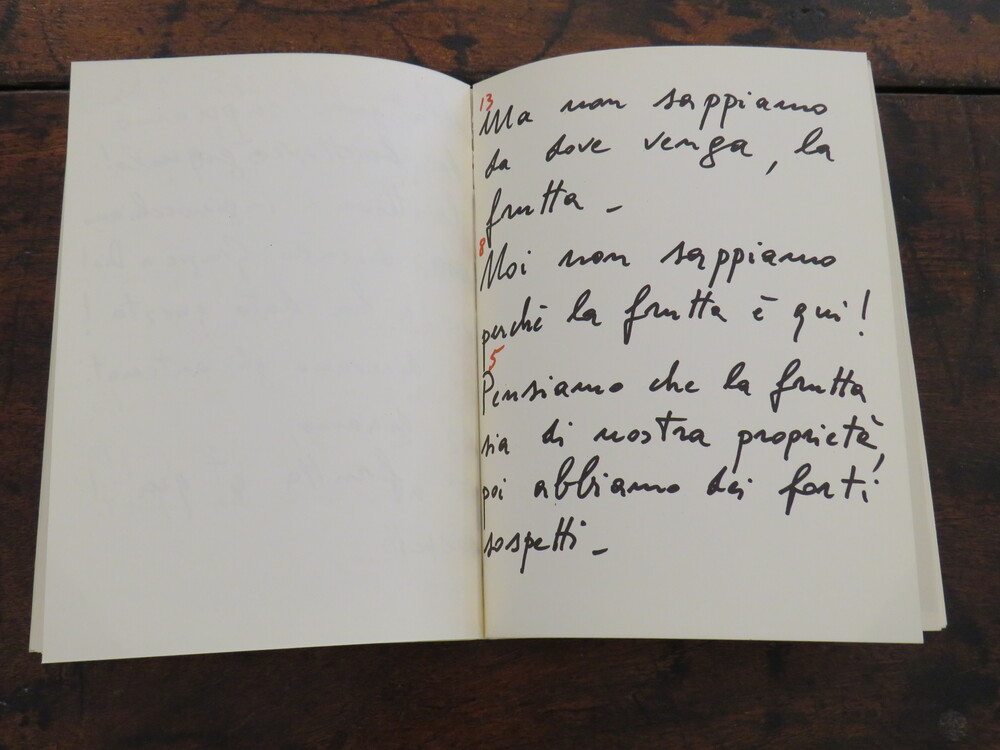 13
Ma non sappiamo
da dove venga, la
frutta -
8
Noi non sappiamo
perchè la frutta è qui!
5
Pensiamo che la frutta
sia di nostra proprietà,
poi abbiamo dei forti
sospetti -